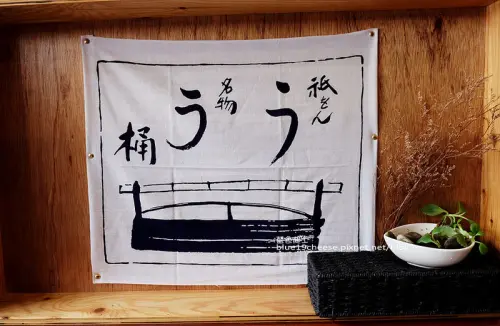 祇をん
う
名物
う
桶
blue19cheese.pixnet.net/